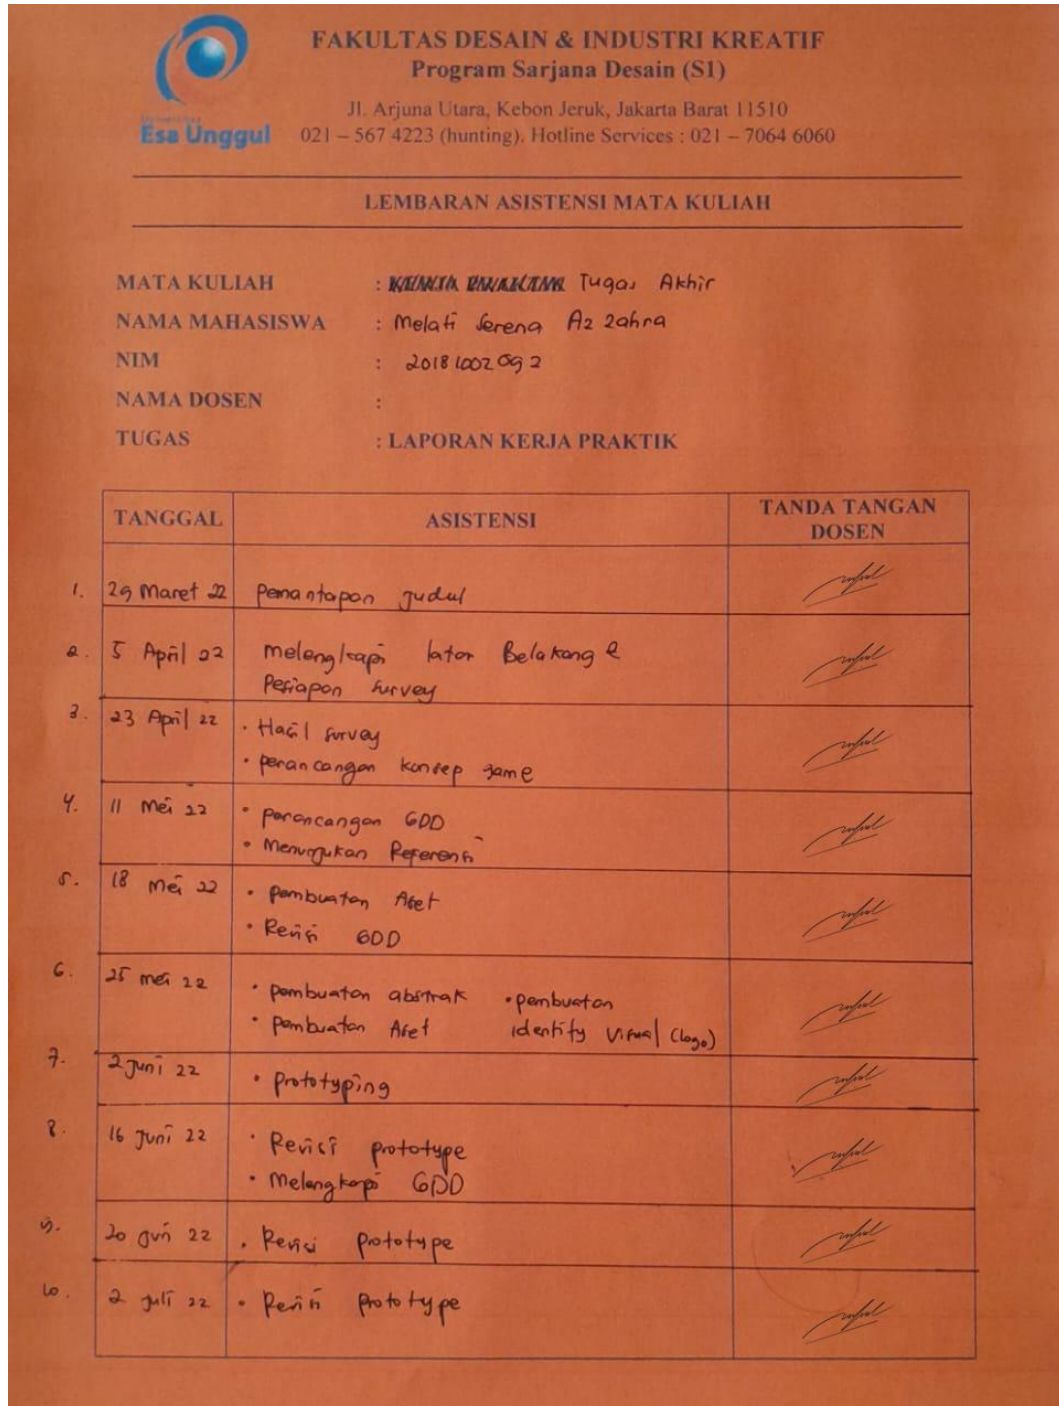 FAKULTAS DESAIN & INDUSTRI KREATIF
Program Sarjana Desain (S1)
Jl. Arjuna Utara, Kebon Jeruk, Jakarta Barat 11510
Esa Unggul
021 – 567 4223 (hunting). Hotline Services : 021 – 7064 6060
LEMBARAN ASISTENSI MATA KULIAH
MATA KULIAH : Tugas Akhir
NAMA MAHASISWA : Melati Serena Az zahra
NIM : 20181002092
NAMA DOSEN :
TUGAS : LAPORAN KERJA PRAKTIK
TANGGAL ASISTENSI TANDA TANGAN DOSEN
1. 29 Maret 22 Pemantapan Judul
2. 5 April 22 Melengkapi latar Belakang &
Persiapan survey
3. 23 April 22 • Hasil survey
• perancangan konsep game
4. 11 Mei 22 • perancangan GDD
• Menunjukan Referensi
5. 18 Mei 22 • pembuatan Aset
• Revisi GDD
6. 25 mei 22 • pembuatan abstrak • pembuatan
• pembuatan Aset identity visual (logo)
7. 2 Juni 22 • prototyping
8. 16 Juni 22 • Revisi prototype
• Melengkapi GDD
9. 20 Juni 22 • Revisi prototype
10. 2 Juli 22 • Revisi prototype